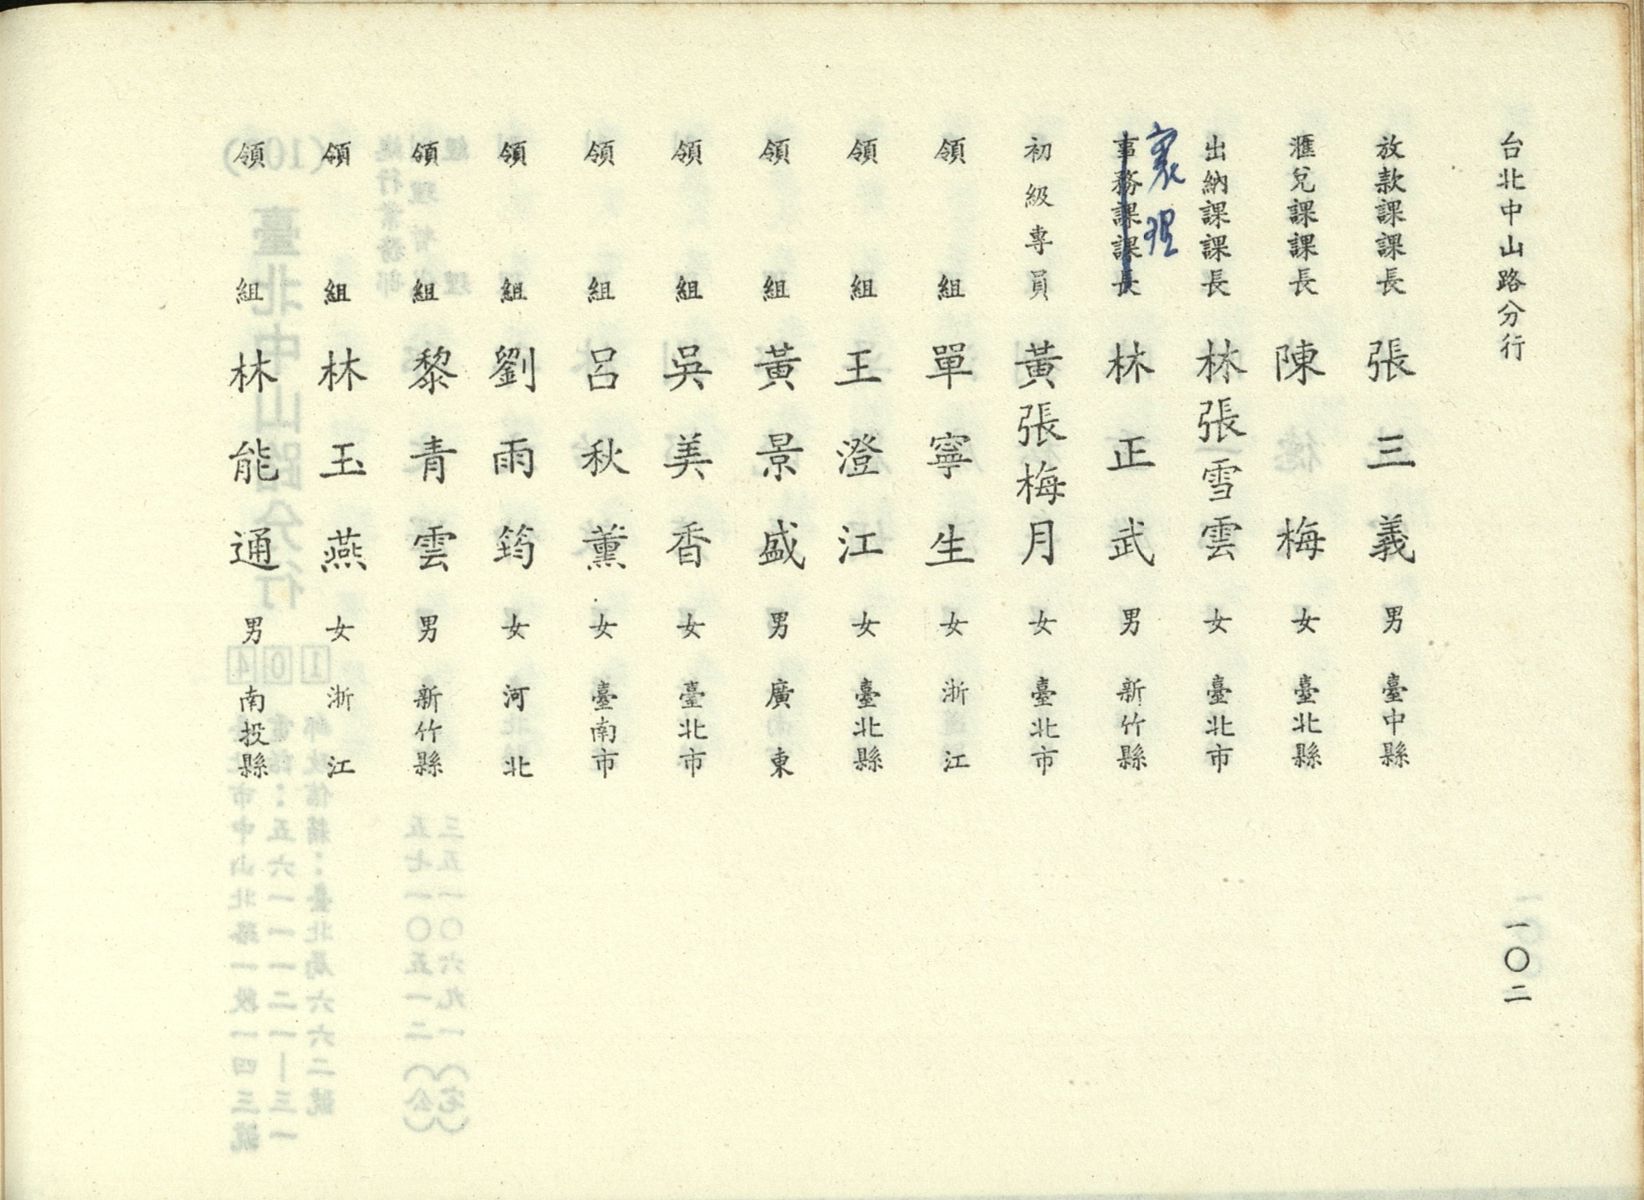 台北中山路分行
一〇二
放款課課長 張三義 男 臺中縣
滙兌課課長 陳梅 女 臺北縣
出納課課長 林張雪雲 女 臺北市
襄理
事務課課長 林正武 男 新竹縣
初級專員 黃張梅月 女 臺北市
領組 單寧生 女 浙江
領組 王澄江 女 臺北縣
領組 黃景盛 男 廣東
領組 吳美香 女 臺北市
領組 呂秋薰 女 臺南市
領組 劉雨筠 女 河北
領組 黎青雲 男 新竹縣
領組 林玉燕 女 浙江
領組 林能通 男 南投縣